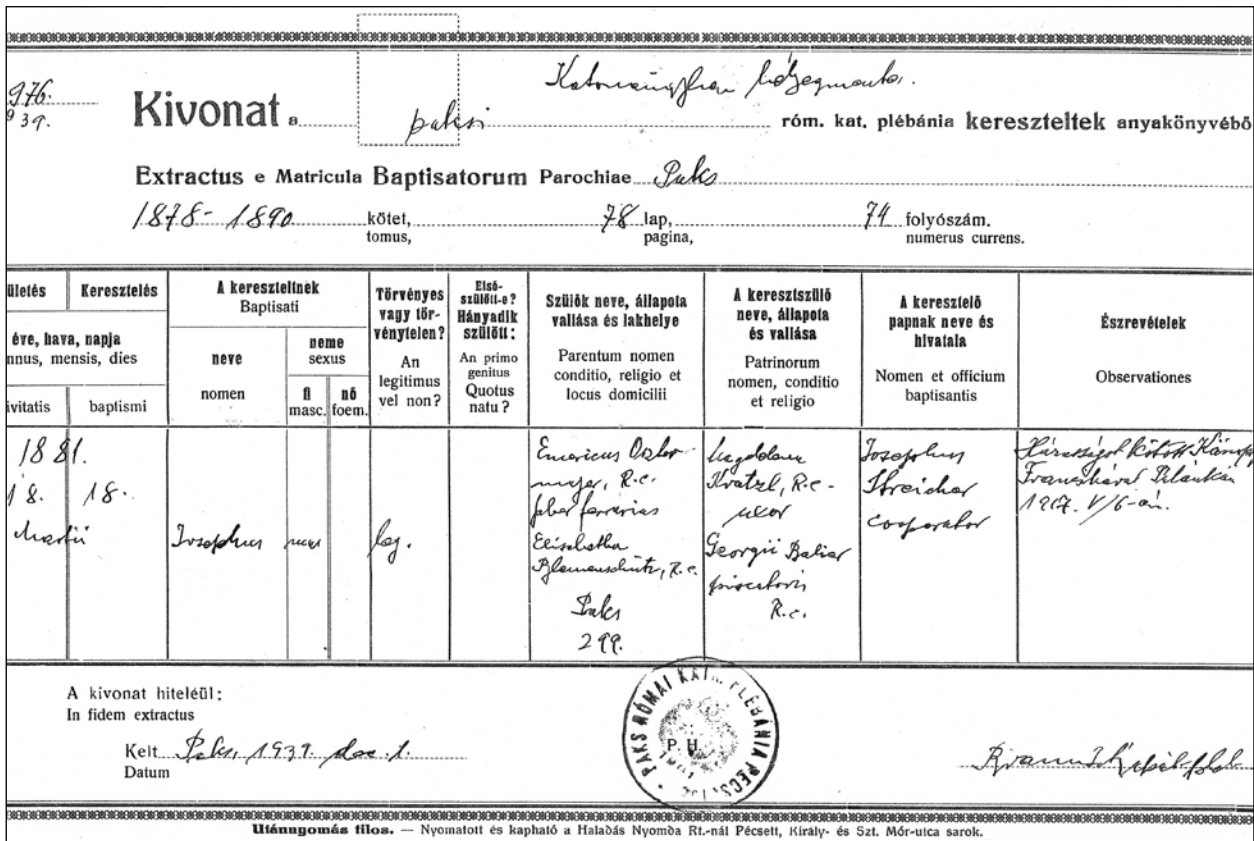 976.
939.
Kivonat a paksi róm. kat. plébánia kereszteltek anyakönyvébő
Extractus e Matricula Baptisatorum Parochiae Paks
1878-1890 kötet, 78 lap, 74 folyószám.
tomus, pagina, numerus currens.
ületés
Keresztelés
éve, hava, napja
nnus, mensis, dies
ivitatis
baptismi
A kereszteltnek
Baptisati
neve
nomen
neme
sexus
fi
masc.
nő
foem.
Törvényes
vagy tör-
vénytelen?
An
legitimus
vel non?
Első-
szülött-e?
Hányadik
szülött:
An primo
genitus
Quotus
natu?
Szülők neve, állapota
vallása és lakhelye
Parentum nomen
conditio, religio et
locus domicilii
A keresztszülő
neve, állapota
és vallása
Patrinorum
nomen, conditio
et religio
A keresztelő
papnak neve és
hivatala
Nomen et officium
baptisantis
Észrevételek
Observationes
1881.
18.
Martii
18.
Josephus
leg.
Emericus
R.c.
faber ferrarius
Elisabetha
R.c.
Paks
299.
Magdolena
Kratzl, R.c.
uxor
Georgii
piscatoris
R.c.
Josephus
Streicher
cooperator
Házasságot kötött
1917. V/6-án.
A kivonat hiteléül:
In fidem extractus
Kelt Paks, 1939. dec. 1.
Datum
PAKS RÓMAI KATH. PLÉBÁNIA PÉCS
P. H.
Utánnyomás tilos. — Nyomatott és kapható a Haladás Nyomda Rt.-nál Pécsett, Király- és Szt. Mór-utca sarok.